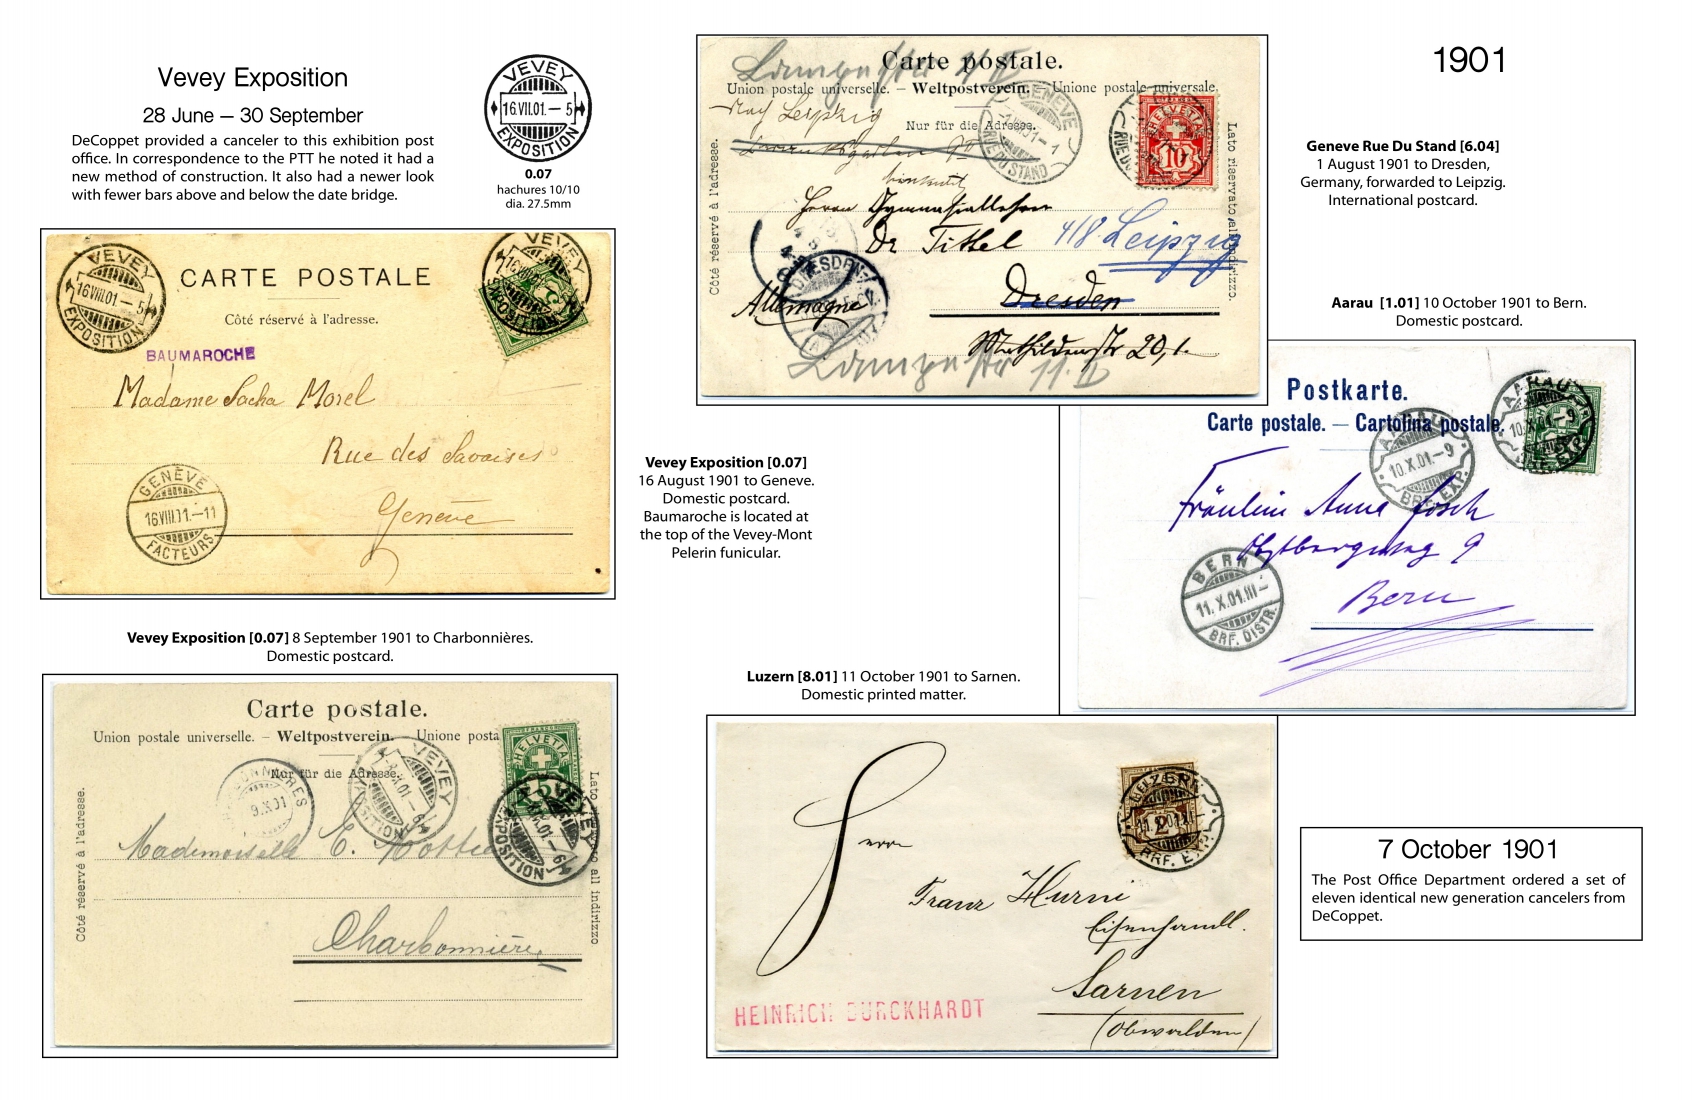 Vevey Exposition
28 June – 30 September
DeCoppet provided a canceler to this exhibition post
office. In correspondence to the PTT he noted it had a
new method of construction. It also had a newer look
with fewer bars above and below the date bridge.
VEVEY
16.VII.01.– 5
EXPOSITION
0.07
hachures 10/10
dia. 27.5mm
VEVEY
16.VIII.01 – 5
EXPOSITION
CARTE POSTALE
Côté réservé à l'adresse.
VEVEY
EXPOSITION
BAUMAROCHE
Madame Sacha Morel
Rue des Savoises
Genève
GENÈVE
16.VIII.01.–11
FACTEURS
Vevey Exposition [0.07]
16 August 1901 to Geneve.
Domestic postcard.
Baumaroche is located at
the top of the Vevey-Mont
Pelerin funicular.
Vevey Exposition [0.07] 8 September 1901 to Charbonnières.
Domestic postcard.
Carte postale.
Union postale universelle. – Weltpostverein. – Unione posta
Nur für die Adresse.
Côté réservé à l'adresse.
HELVETIA
VEVEY
EXPOSITION
VEVEY
EXPOSITION
9.X.01
Mademoiselle E.
Charbonnières
1901
Carte postale.
Union postale universelle. – Weltpostverein. – Unione postale universale.
Nur für die Adresse.
Côté réservé à l'adresse.
Lato riservato all'indirizzo.
Nach Leipzig
GENÈVE
RUE DU STAND
HELVETIA
10
Herrn Gymnasiallehrer
Dr Tittel 4/8. Leipzig
DRESDEN
Allemagne
Dresden
Mathildenstr 20, I.
Geneve Rue Du Stand [6.04]
1 August 1901 to Dresden,
Germany, forwarded to Leipzig.
International postcard.
Aarau [1.01] 10 October 1901 to Bern.
Domestic postcard.
Postkarte.
Carte postale. – Cartolina postale.
AARAU
10.X.01.–9
BRF. EXP.
AARAU
10.X.01.–9
BRF. EXP.
Fräulein Anna
Bern
BERN
11.X.01.III–
BRF. DISTR.
Luzern [8.01] 11 October 1901 to Sarnen.
Domestic printed matter.
LUZERN
BRF. EXP.
Herrn
Franz Hurni
Eisenhandl.
Sarnen
(Obwalden)
HEINRICH BURCKHARDT
7 October 1901
The Post Office Department ordered a set of
eleven identical new generation cancelers from
DeCoppet.